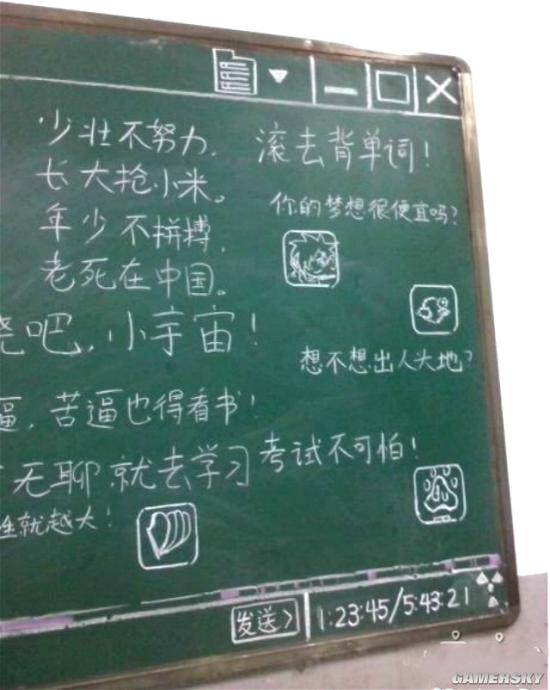 少壮不努力,
长大抢小米。
年少不拼搏,
老死在中国。
滚去背单词!
你的梦想很便宜吗?
烧吧,小宇宙!
想不想出人头地?
逼,苦逼也得看书!
无聊就去学习
考试不可怕!
就越大!
发送>
1:23:45/5:43:21
GAMERSKY